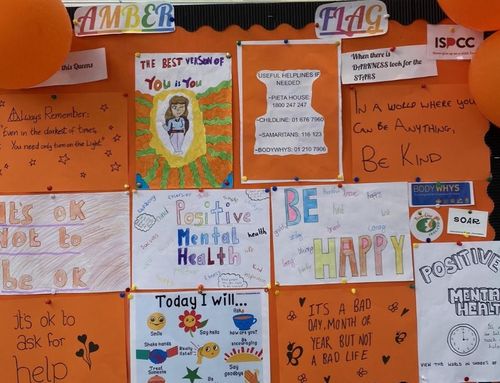 AMBER
FLAG
this Queens
THE BEST VERSION OF
YOU is YOU
USEFUL HELPLINES IF
NEEDED:
~PIETA HOUSE:
1800 247 247
~CHILDLINE: 01 676 7960
~SAMARITANS: 116 123
~BODYWHYS: 01 210 7906
When there is
DARKNESS look for the
STARS
ISPCC
Always Remember:
"Even in the darkest of times,
You need only turn on the Light"
IN A WORLD WHERE YOU
CAN BE ANYTHING,
BE KIND
It's OK
Not to
be OK
Positive
Mental
Health
health
BE
HAPPY
BODYWHYS
SOAR
POSITIVE
MENTAL
HEALTH
VIEW THE WORLD IN
it's ok to
ask for
help
Today I will...
Smile
Say hello
Shake hands
Really
listen
Be
encouraging
Treat
Someone
Say
goodbye
IT'S A BAD
DAY, MONTH OR
YEAR BUT NOT
A BAD LIFE